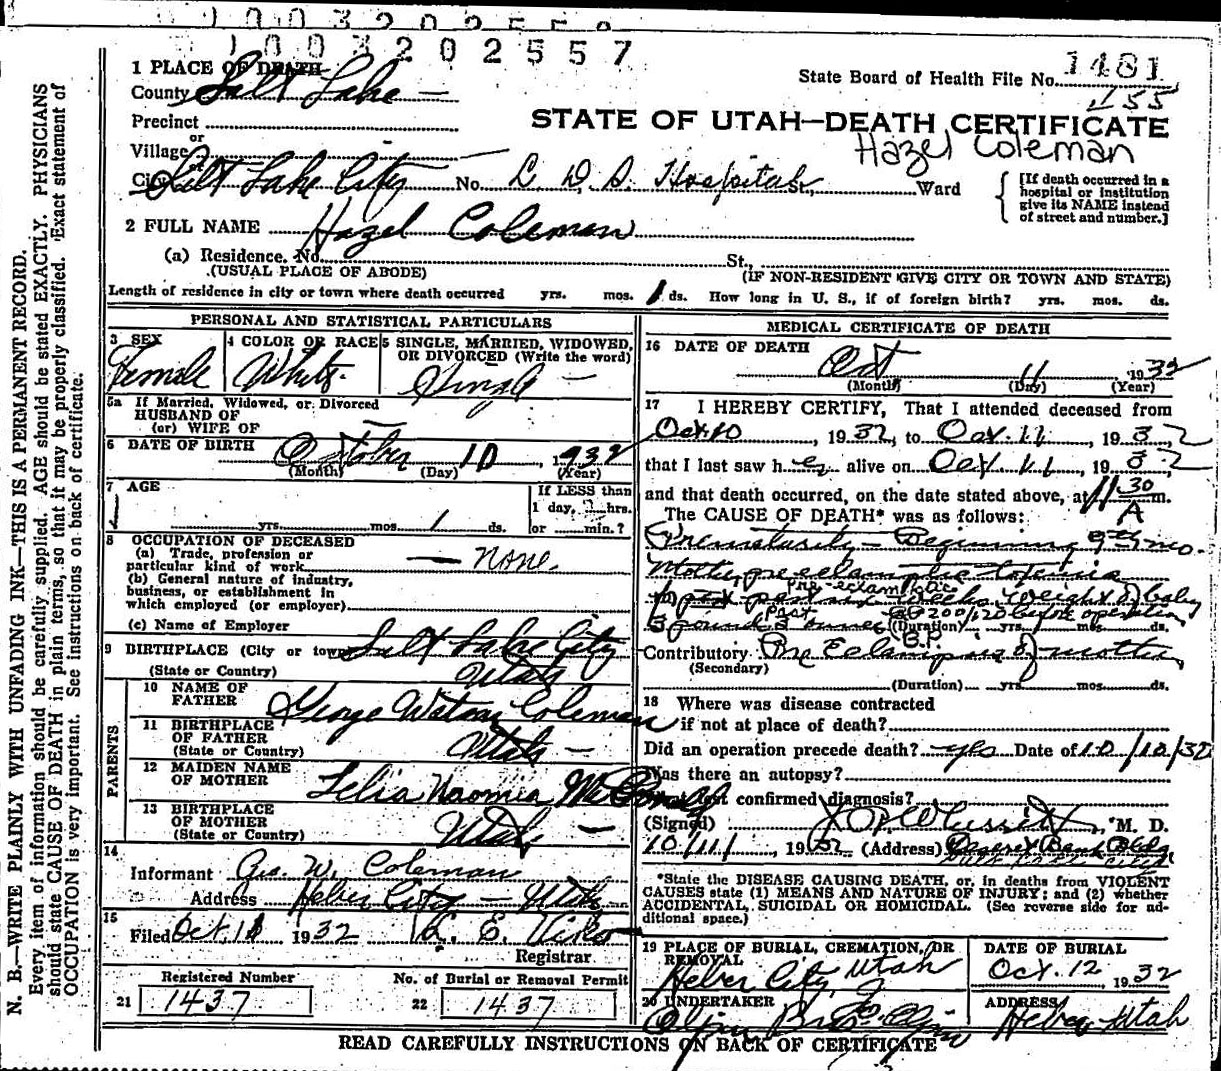 1003202557
1 PLACE OF DEATH
County Salt Lake
State Board of Health File No. 1481
455
Precinct
STATE OF UTAH—DEATH CERTIFICATE
Hazel Coleman
or
Village
or
City Salt Lake City No. L. D. S. Hospital St., Ward
[If death occurred in a hospital or institution give its NAME instead of street and number.]
2 FULL NAME Hazel Coleman
(a) Residence. No. St.,
(USUAL PLACE OF ABODE) (IF NON-RESIDENT GIVE CITY OR TOWN AND STATE)
Length of residence in city or town where death occurred yrs. mos. 1 ds. How long in U. S., if of foreign birth? yrs. mos. ds.
PERSONAL AND STATISTICAL PARTICULARS
3 SEX 4 COLOR OR RACE 5 SINGLE, MARRIED, WIDOWED, OR DIVORCED (Write the word)
Female White Single
5a If Married, Widowed, or Divorced
HUSBAND OF
(or) WIFE OF
6 DATE OF BIRTH October 10 1932
(Month) (Day) (Year)
7 AGE If LESS than
1 day, hrs.
yrs. mos. 1 ds. or min.?
8 OCCUPATION OF DECEASED
(a) Trade, profession or
particular kind of work none.
(b) General nature of industry,
business, or establishment in
which employed (or employer)
(c) Name of Employer
9 BIRTHPLACE (City or town) Salt Lake City
(State or Country) Utah
PARENTS
10 NAME OF
FATHER George Watson Coleman
11 BIRTHPLACE
OF FATHER
(State or Country) Utah
12 MAIDEN NAME
OF MOTHER Lelia Naomia
13 BIRTHPLACE
OF MOTHER
(State or Country) Utah
14
Informant Geo. W. Coleman
Address Heber City - Utah
15
Filed Oct. 11 1932
Registrar
Registered Number No. of Burial or Removal Permit
21 1437 22 1437
MEDICAL CERTIFICATE OF DEATH
16 DATE OF DEATH
Oct 11 1932
(Month) (Day) (Year)
17 I HEREBY CERTIFY, That I attended deceased from
Oct 10, 1932, to Oct. 11, 1932,
that I last saw her alive on Oct. 11, 1932
and that death occurred, on the date stated above, at 11 30 A m.
The CAUSE OF DEATH* was as follows:
Prematurity — Beginning mo.
Mother preeclamptic toxemia
weight of baby
3 pound before operation
(Duration) yrs. mos. ds.
Contributory Pre Eclampsia of mother
(Secondary)
(Duration) yrs. mos. ds.
18 Where was disease contracted
if not at place of death?
Did an operation precede death? yes Date of 10/10/32
Was there an autopsy?
What test confirmed diagnosis?
(Signed) M. D.
10/11, 1932 (Address) Deseret Bank Bldg
*State the DISEASE CAUSING DEATH, or, in deaths from VIOLENT
CAUSES state (1) MEANS AND NATURE OF INJURY; and (2) whether
ACCIDENTAL, SUICIDAL OR HOMICIDAL. (See reverse side for additional space.)
19 PLACE OF BURIAL, CREMATION, OR REMOVAL DATE OF BURIAL
Heber City, Utah Oct. 12, 1932
20 UNDERTAKER ADDRESS
Olpin Bros. Heber Utah
READ CAREFULLY INSTRUCTIONS ON BACK OF CERTIFICATE
N. B.—WRITE PLAINLY WITH UNFADING INK—THIS IS A PERMANENT RECORD.
Every item of information should be carefully supplied. AGE should be stated EXACTLY. PHYSICIANS
should state CAUSE OF DEATH in plain terms, so that it may be properly classified. Exact statement of
OCCUPATION is very important. See instructions on back of certificate.